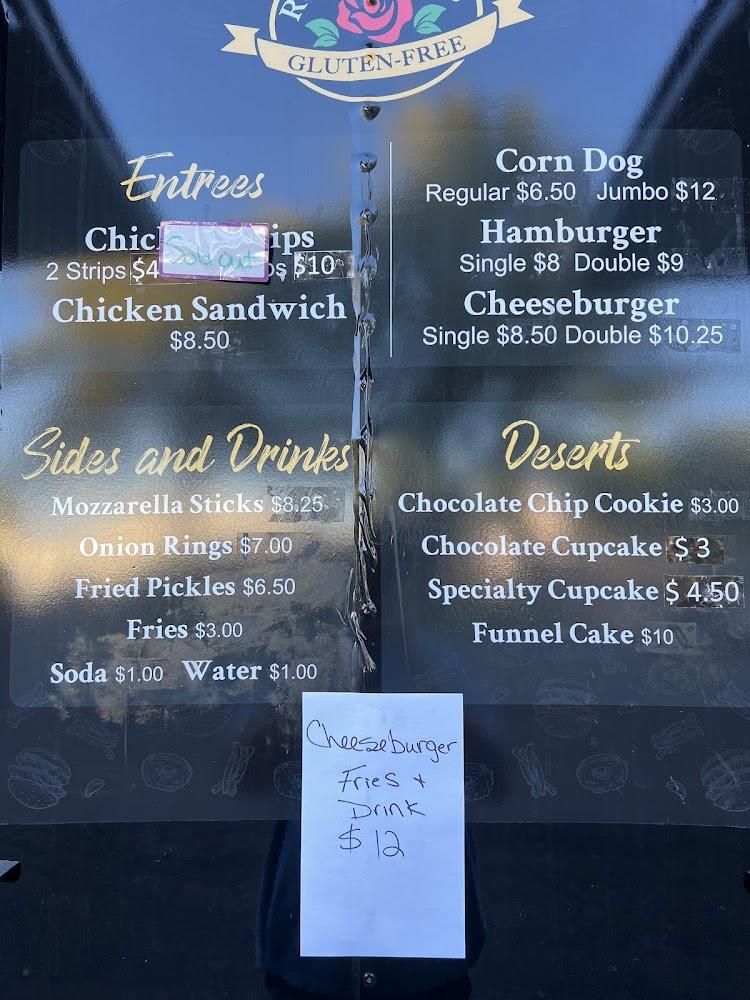 GLUTEN-FREE
Entrees
Sold out
2 Strips $4 $10
Chicken Sandwich
$8.50
Corn Dog
Regular $6.50 Jumbo $12
Hamburger
Single $8 Double $9
Cheeseburger
Single $8.50 Double $10.25
Sides and Drinks
Mozzarella Sticks $8.25
Onion Rings $7.00
Fried Pickles $6.50
Fries $3.00
Soda $1.00 Water $1.00
Deserts
Chocolate Chip Cookie $3.00
Chocolate Cupcake $3
Specialty Cupcake $4.50
Funnel Cake $10
Cheeseburger
Fries +
Drink
$12